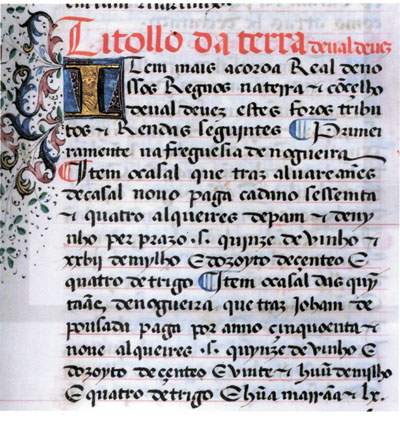 Titollo da terra deual deuez
Item mais acoroa Real deno
ssos Regnos na terra & cõcelho
deual deuez estes foros tribu
tos & Rendas seguyntes Primei
ramente na freguesia de nogueira
Item ocasal que traz aluareanes
decasal nouo paga cadãno sessemta
& quatro alqueires depam & devy
nho per prazo .s. quynze de vinho &
xxbij demylho E dozoyto de çenteo E
quatro de trigo Item ocasal das quyn
tãas denogueira que traz Joham de
pousada paga por anno çinquoenta &
noue alqueires .s. quynze de vinho E
dozoyto de çenteo E vinte & huũ demylho
E quatro de trigo E hũa marrãa & lx.